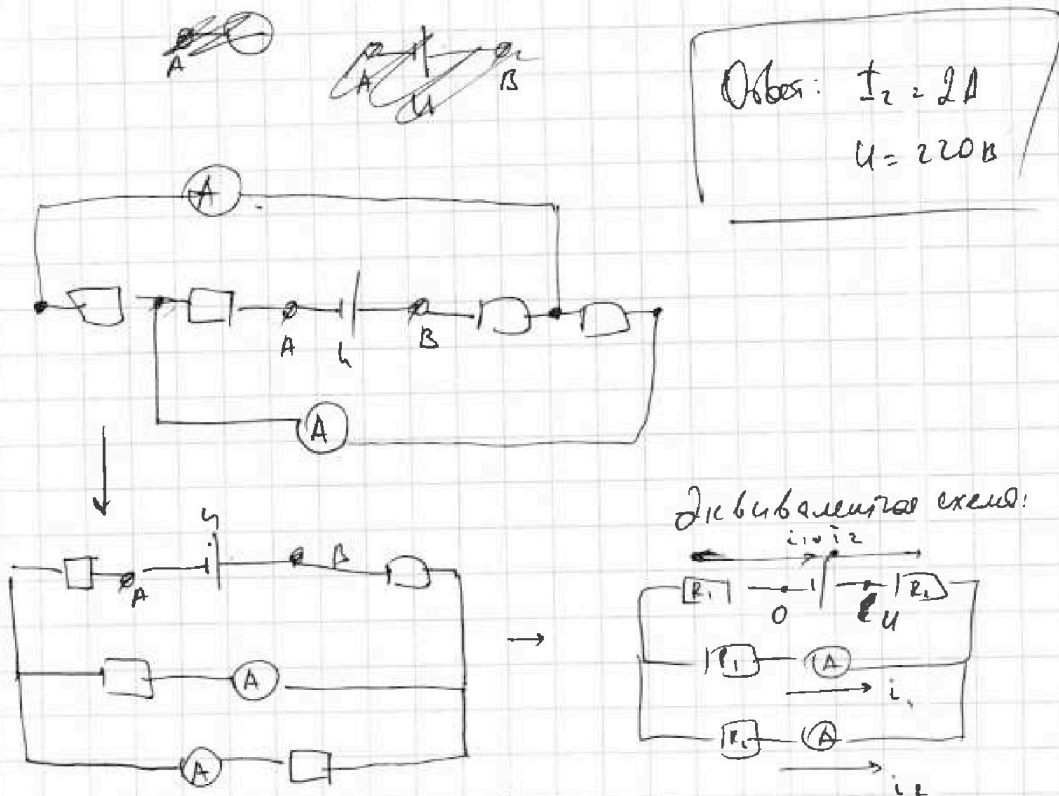 A
A U B
Ответ: I₂ = 2А
U = 220 В
A
A U B
A
U
A B
A
A
Эквивалентная схема:
i₁+i₂
R₁ 0 U R₂
R₁ A
i₁
R₂ A
i₂